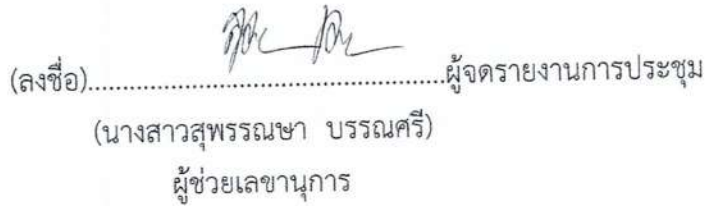 (ลงชื่อ)....................................................ผู้จดรายงานการประชุม
(นางสาวสุพรรณษา บรรณศรี)
ผู้ช่วยเลขานุการ